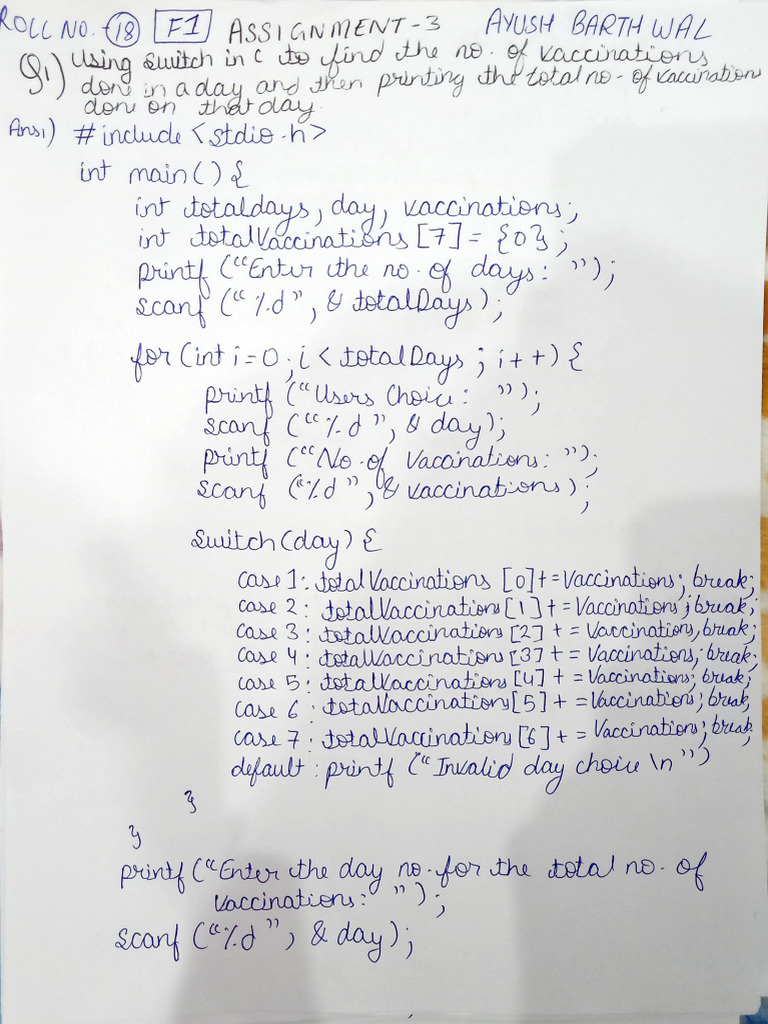 ROLL NO. - 18 F1 ASSIGNMENT-3 AYUSH BARTHWAL
Q1) Using switch in C to find the no. of vaccinations
done in a day and then printing the total no. of vaccination
done on that day.
Ans1) #include <stdio.h>
int main() {
int totaldays, day, vaccinations;
int totalVaccinations [7] = {0};
printf ("Enter the no. of days: ");
scanf ("%d", & totalDays);
for (int i=0; i < totalDays ; i++) {
printf ("Users Choice: ");
scanf ("%d", & day);
printf ("No. of Vaccinations: ");
scanf ("%d", & vaccinations);
Switch (day) {
case 1: totalVaccinations [0]+=Vaccinations; break;
case 2: totalVaccinations [1]+=Vaccinations; break;
case 3: totalVaccinations [2]+= Vaccinations, break;
case 4: totalVaccinations [3]+= Vaccinations; break;
case 5: totalVaccinations [4]+= Vaccinations; break;
case 6: totalVaccinations [5]+=Vaccinations; break,
case 7: totalVaccinations [6]+= Vaccinations; break.
default: printf ("Invalid day choice \n")
}
}
printf ("Enter the day no. for the total no. of
Vaccinations: ");
scanf ("%d", & day);